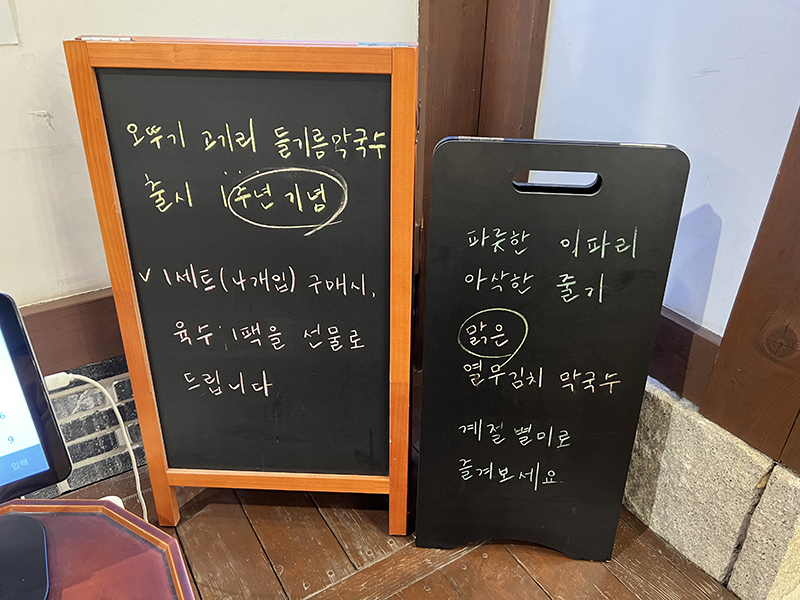 오뚜기 고기리 들기름막국수
출시 1주년 기념
✓ 1세트(4개입) 구매시,
육수 1팩을 선물로
드립니다
파릇한 이파리
아삭한 줄기
맑은
열무김치 막국수
계절 별미로
즐겨보세요.
6
9
입력